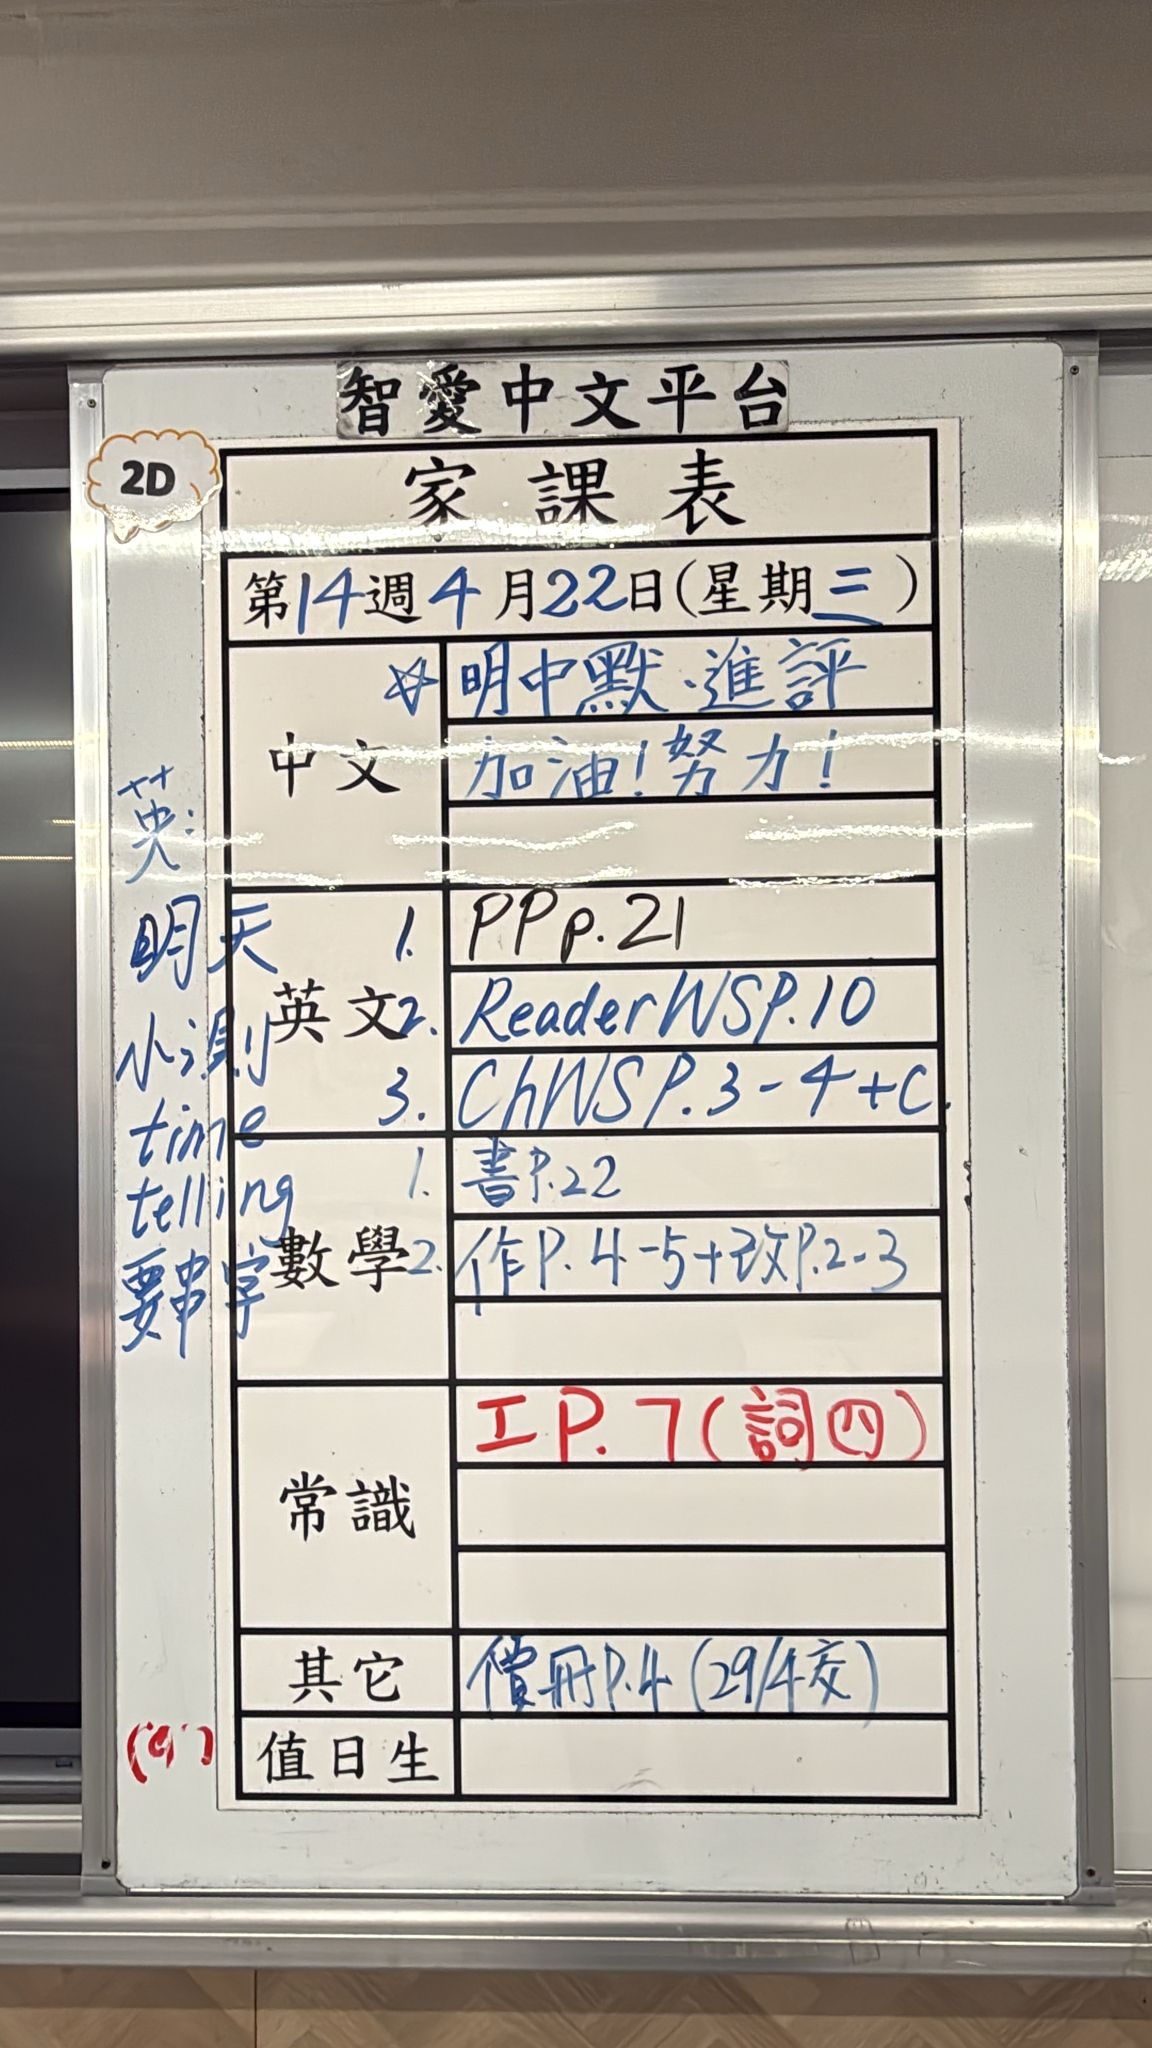 智愛中文平台
2D
家課表
第14週4月22日(星期三)
中文
☆ 明中默、進評
加油!努力!
英文
1. PP p.21
2. Reader WS P.10
3. Ch WS P.3-4+C.
英:
明天
小測
time
telling
要串字
數學
1. 書P.22
2. 作P.4-5+改P.2-3
常識
工P.7(詞四)
其它
價冊P.4(29/4交)
值日生